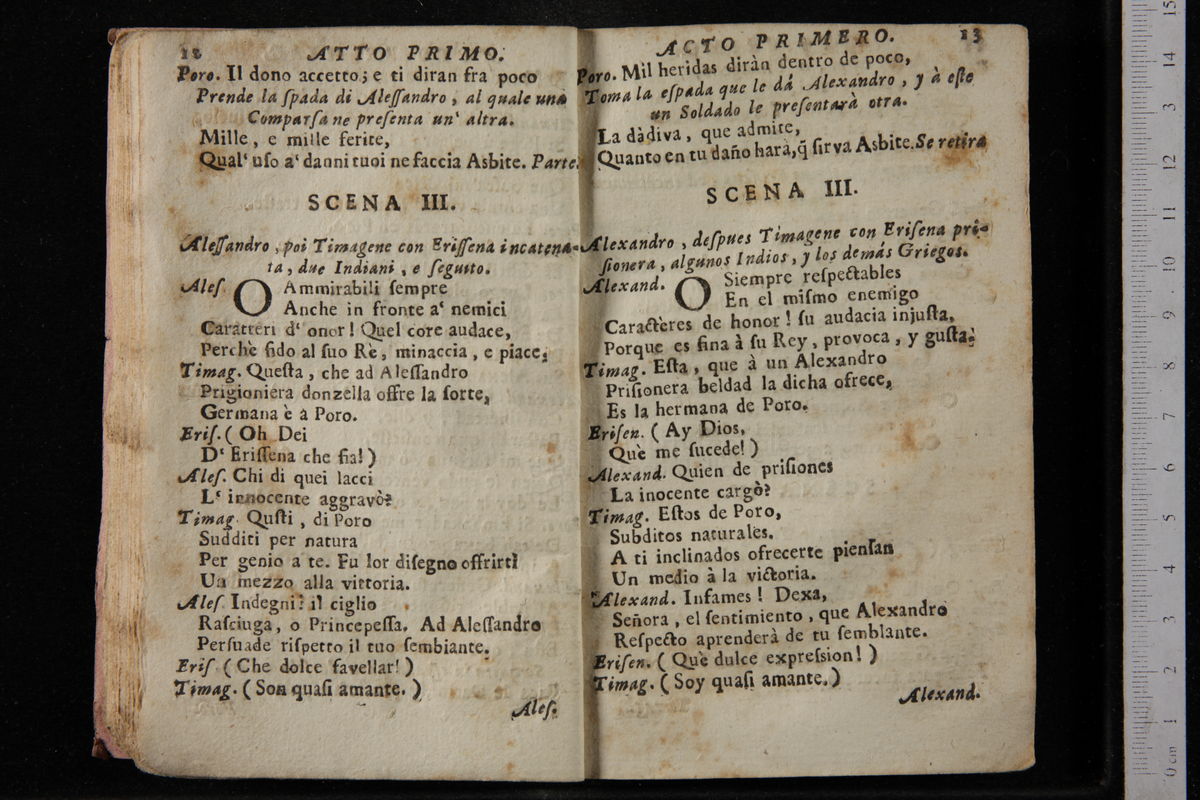 12 ATTO PRIMO.
Poro. Il dono accetto; e ti diran fra poco
Prende la ſpada di Aleſſandro, al quale una
Comparſa ne preſenta un‘ altra.
Mille, e mille ferite,
Qual‘ uſo a‘ danni tuoi ne faccia Asbite. Parte.
SCENA III.
Aleſſandro, poi Timagene con Eriſſena incatena-
ta, due Indiani, e ſeguito.
Aleſ. O Ammirabili ſempre
Anche in fronte a‘ nemici
Caratteri d‘ onor! Quel core audace,
Perchè fido al ſuo Rè, minaccia, e piace.
Timag. Queſta, che ad Aleſſandro
Prigioniera donzella offre la ſorte,
Germana è a Poro.
Eriſ. ( Oh Dei
D‘ Eriſſena che fia! )
Aleſ. Chi di quei lacci
L‘ innocente aggravò?
Timag. Quſti, di Poro
Sudditi per natura
Per genio a te. Fu lor diſegno offrirti
Un mezzo alla vittoria.
Aleſ. Indegni! il ciglio
Raſciuga, o Princepeſſa. Ad Aleſſandro
Perſuade riſpetto il tuo ſembiante.
Eriſ. ( Che dolce favellar! )
Timag. ( Son quaſi amante. )
Aleſ.
ACTO PRIMERO. 13
Poro. Mil heridas diràn dentro de poco,
Toma la eſpada que le dá Alexandro, y à eſte
un Soldado le preſentarà otra.
La dàdiva, que admite,
Quanto en tu daño harà, q̃ ſirva Asbite. Se retira
SCENA III.
Alexandro, deſpues Timagene con Eriſena pri-
ſionera, algunos Indios, y los demás Griegos.
Alexand. O Siempre reſpectables
En el miſmo enemigo
Caractères de honor! ſu audacia injuſta,
Porque es fina à ſu Rey, provoca, y guſta.
Timag. Eſta, que à un Alexandro
Priſionera beldad la dicha ofrece,
Es la hermana de Poro.
Eriſen. ( Ay Dios,
Què me ſucede! )
Alexand. Quien de priſiones
La inocente cargò?
Timag. Eſtos de Poro,
Subditos naturales.
A ti inclinados ofrecerte pienſan
Un medio à la victoria.
Alexand. Infames! Dexa,
Señora, el ſentimiento, que Alexandro
Reſpecto aprenderà de tu ſemblante.
Eriſen. ( Què dulce expreſsion! )
Timag. ( Soy quaſi amante. )
Alexand.
0 cm 1 2 3 4 5 6 7 8 9 10 11 12 13 14 15